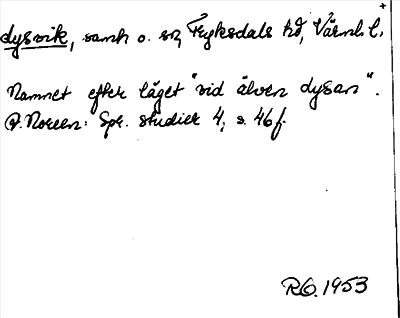 dysvik, samh o. sn, Fryksdals hd, Värml. l.
Namnet efter läget "vid älven dysan".
A. Noreen: Spr. studier 4, s. 46 f.
RO. 1953